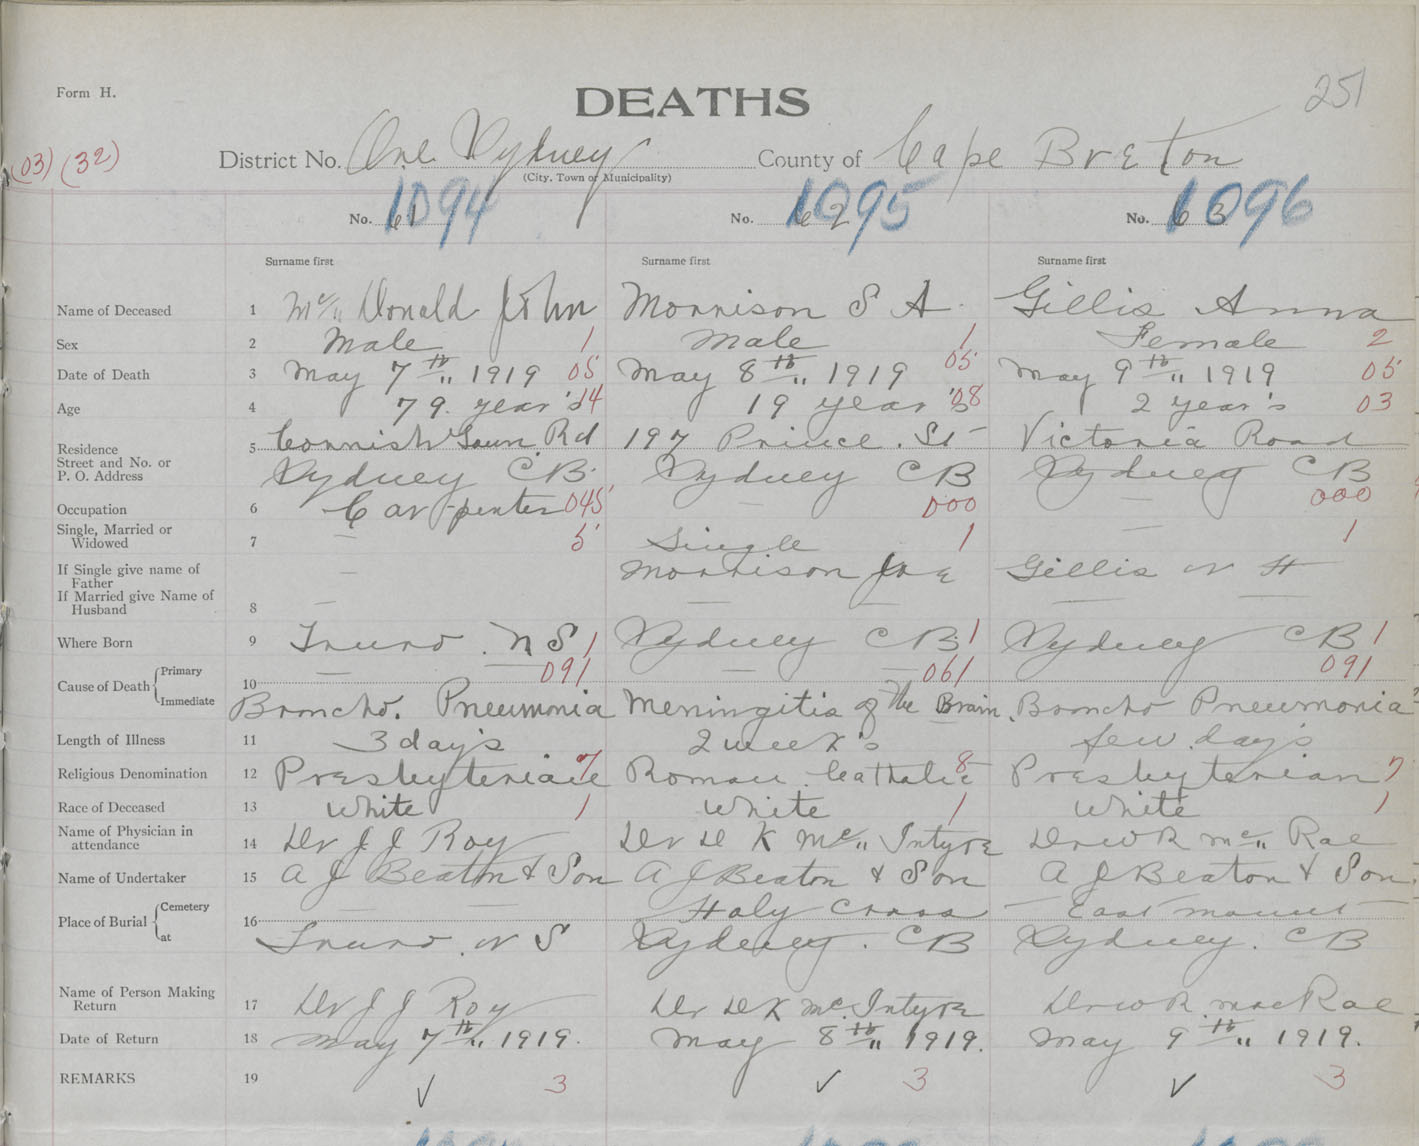 251
Form H.
DEATHS
(03) (32)
District No. One Sydney County of Cape Breton
(City, Town or Municipality)
1094 1095 1096
No. 61 No. 62 No. 63
Surname first Surname first Surname first
Name of Deceased 1 Mc Donald John Morrison S A. Gillis Anna
Sex 2 Male 1 Male 1 Female 2
Date of Death 3 May 7th 1919 05 May 8th 1919 05 May 9th 1919 05
Age 4 79 year's 14 19 year's 08 2 year's 03
Residence 5 Cornishtown Rd 197 Prince St Victoria Road
Street and No. or
P. O. Address Sydney C B. Sydney C B Sydney C B
Occupation 6 Carpenter 045 — 000 — 000
Single, Married or
Widowed 7 — 5 Single 1 — 1
If Single give name of
Father — Morrison Gillis
If Married give Name of
Husband 8 — — — — —
Where Born 9 Truro. N S 1 Sydney C B. 1 Sydney C B 1
Cause of Death Primary 10 — 091 — 061 091
Immediate Broncho. Pneumonia Meningitis of the Brain. Broncho Pneumonia
Length of Illness 11 3 day's 2 week's few day's
Religious Denomination 12 Presbyterian 7 Roman Catholic 8 Presbyterian 7
Race of Deceased 13 White 1 White 1 White 1
Name of Physician in
attendance 14 Dr J J Roy Dr D K Mc Intyre Dr W R Mc Rae
Name of Undertaker 15 A J Beaton & Son A J Beaton & Son A J Beaton & Son
Place of Burial Cemetery 16 — — Holy Cross — East mount —
at Truro. N S Sydney. C B Sydney. C B
Name of Person Making
Return 17 Dr J J Roy Dr D K Mc. Intyre Dr W R. MacRae
Date of Return 18 May 7th 1919. May 8th 1919. May 9th 1919.
REMARKS 19 ✓ 3 ✓ 3 ✓ 3